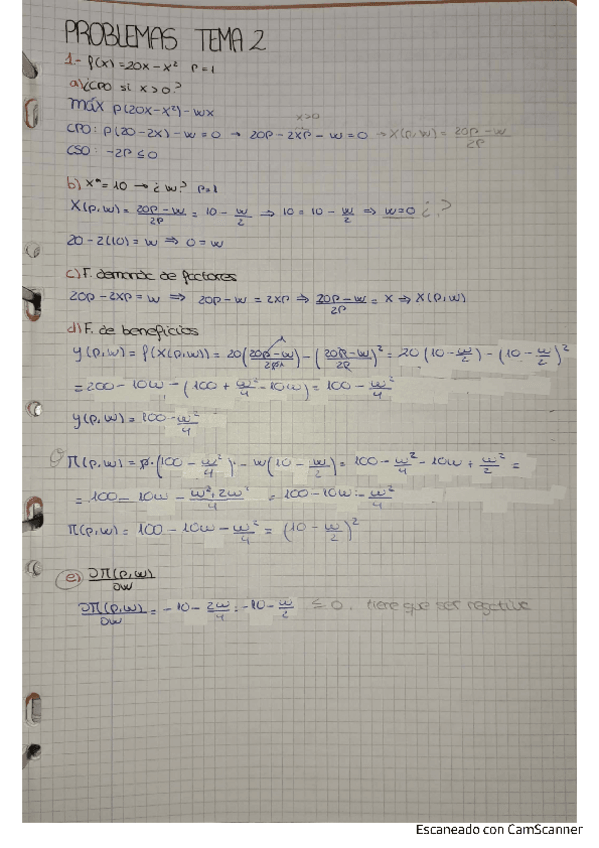 PROBLEMAS TEMA 2
1- f(x)=20x-x² P=1
a) ¿CPO si x>0?
máx P(20x-x²)-wx
x>0
CPO: P(20-2x)-w=0 → 20P-2xP-w=0 → x(p,w)=20P-w/2P
CSO: -2P≤0
b) x*=10 → ¿w? P=1
x(p,w)=20P-w/2P=10-w/2 ⇒ 10=10-w/2 ⇒ w=0 ¿?
20-2(10)=w ⇒ 0=w
c) F. demanda de factores
20P-2xP=w ⇒ 20P-w=2xP ⇒ 20P-w/2P=x ⇒ x(p,w)
d) F. de beneficios
y(p,w)=f(x(p,w))=20(20P-w/2P)-(20P-w/2P)²=20(10-w/2)-(10-w/2)²
=200-10w-(100+w²/4-10w)=100-w²/4
y(p,w)=100-w²/4
π(p,w)=p·(100-w²/4)-w(10-w/2)=100-w²/4-10w+w²/2=
=100-10w-w²+2w²/4=100-10w-w²/4
π(p,w)=100-10w-w²/4=(10-w/2)²
e) ∂π(p,w)/∂w
∂π(p,w)/∂w=-10-2w/4=-10-w/2 ≤0. tiene que ser negativa